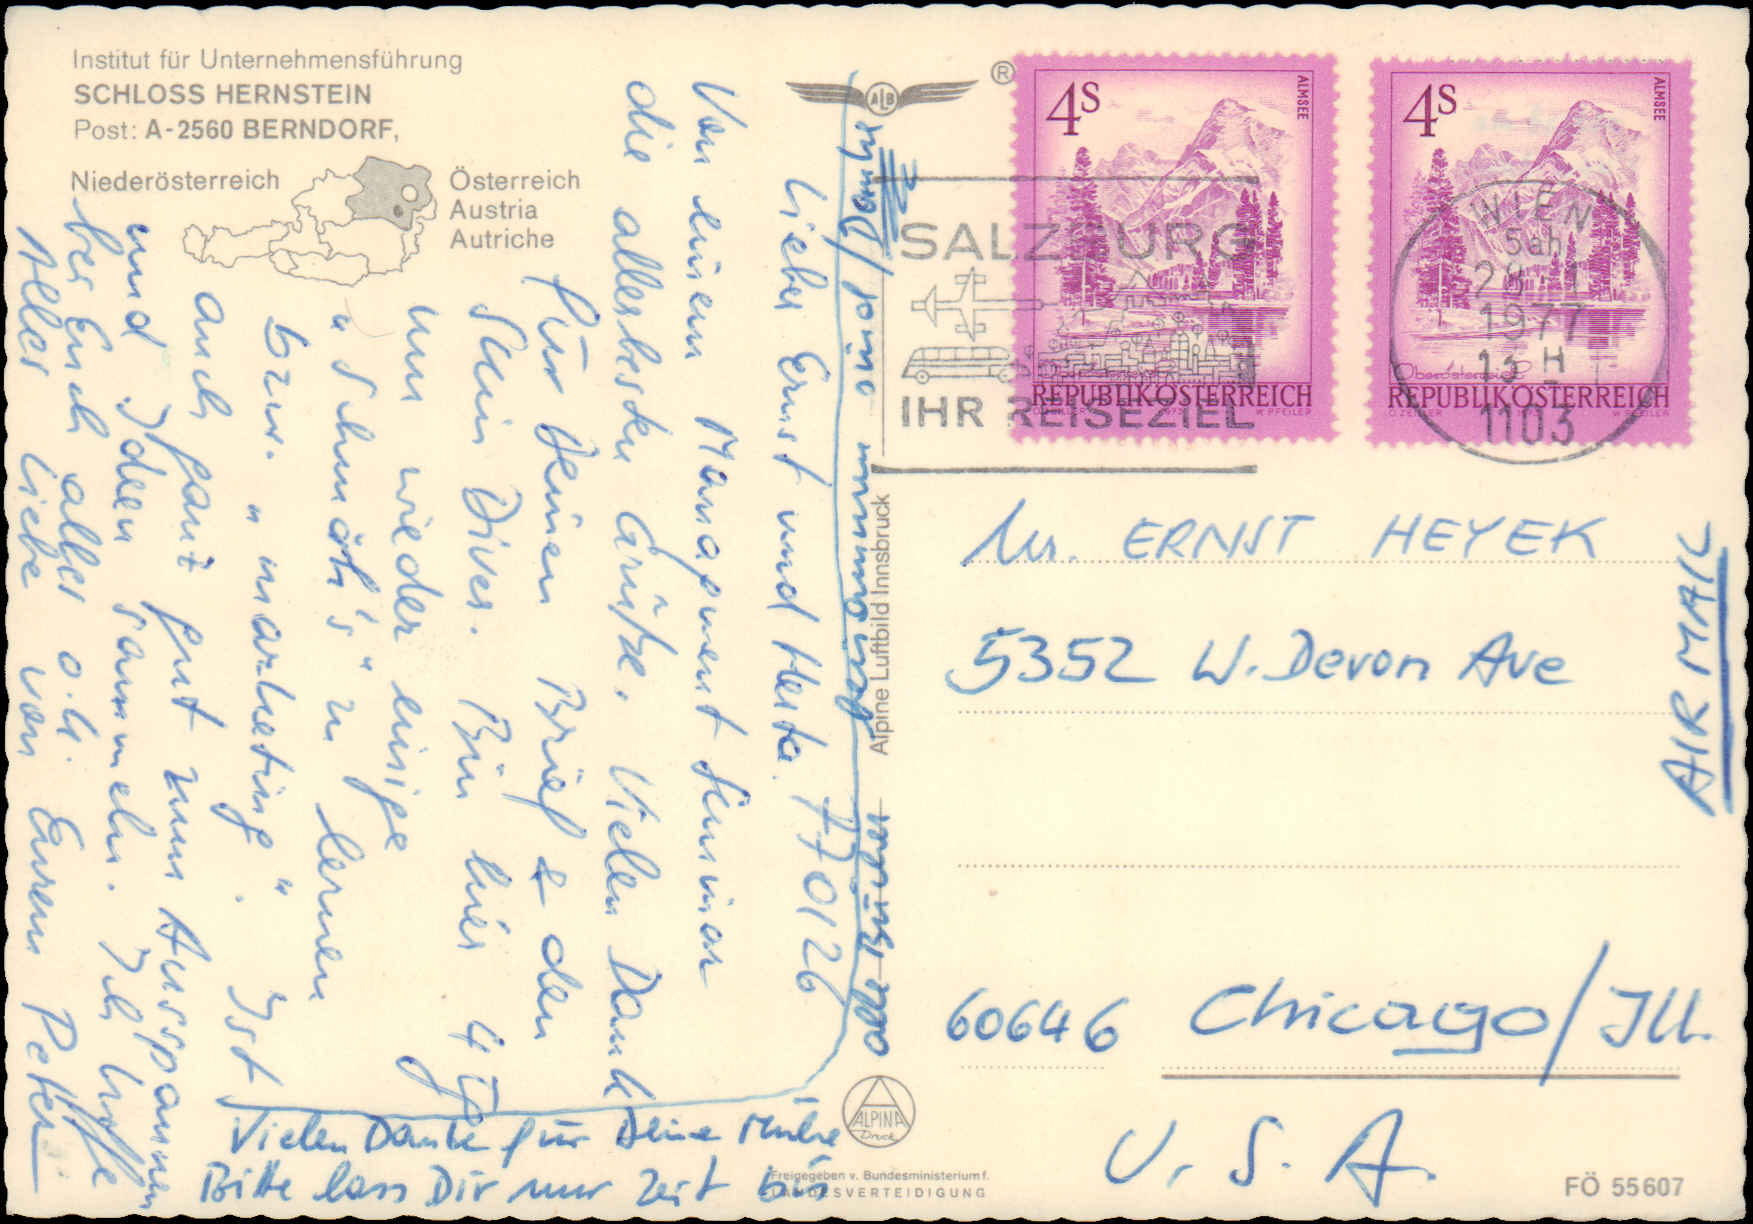 Institut für Unternehmensführung
SCHLOSS HERNSTEIN
Post: A-2560 BERNDORF,
Niederösterreich
Österreich
Austria
Autriche
ALB
®
770126
Lieber Ernst und Herta
Von einem Managment Seminar
die allerbesten Grüße. Vielen Dank
für Deinen Brief & den
Bin hier 4 Tg
um wieder einige
"Schmäh's" zu lernen
bzw. "marketing". Ist
auch ganz gut zum Ausspannen
und Ideen sammeln. Ich hoffe
bei Euch alles o.k.
Alles Liebe von Eurem Peter
Vielen Dank für Deine Mühe
Bitte lass Dir nur Zeit bis
Alpine Luftbild Innsbruck
ALPINA
Druck
Freigegeben v. Bundesministerium f.
LANDESVERTEIDIGUNG
SALZBURG
IHR REISEZIEL
4S
ALMSEE
REPUBLIK ÖSTERREICH
4S
ALMSEE
Oberösterreich
REPUBLIK ÖSTERREICH
WIEN
1977
13 H
1103
Mr. ERNST HEYEK
5352 W. Devon Ave
60646 Chicago/Ill.
U.S.A.
AIR MAIL
FÖ 55607